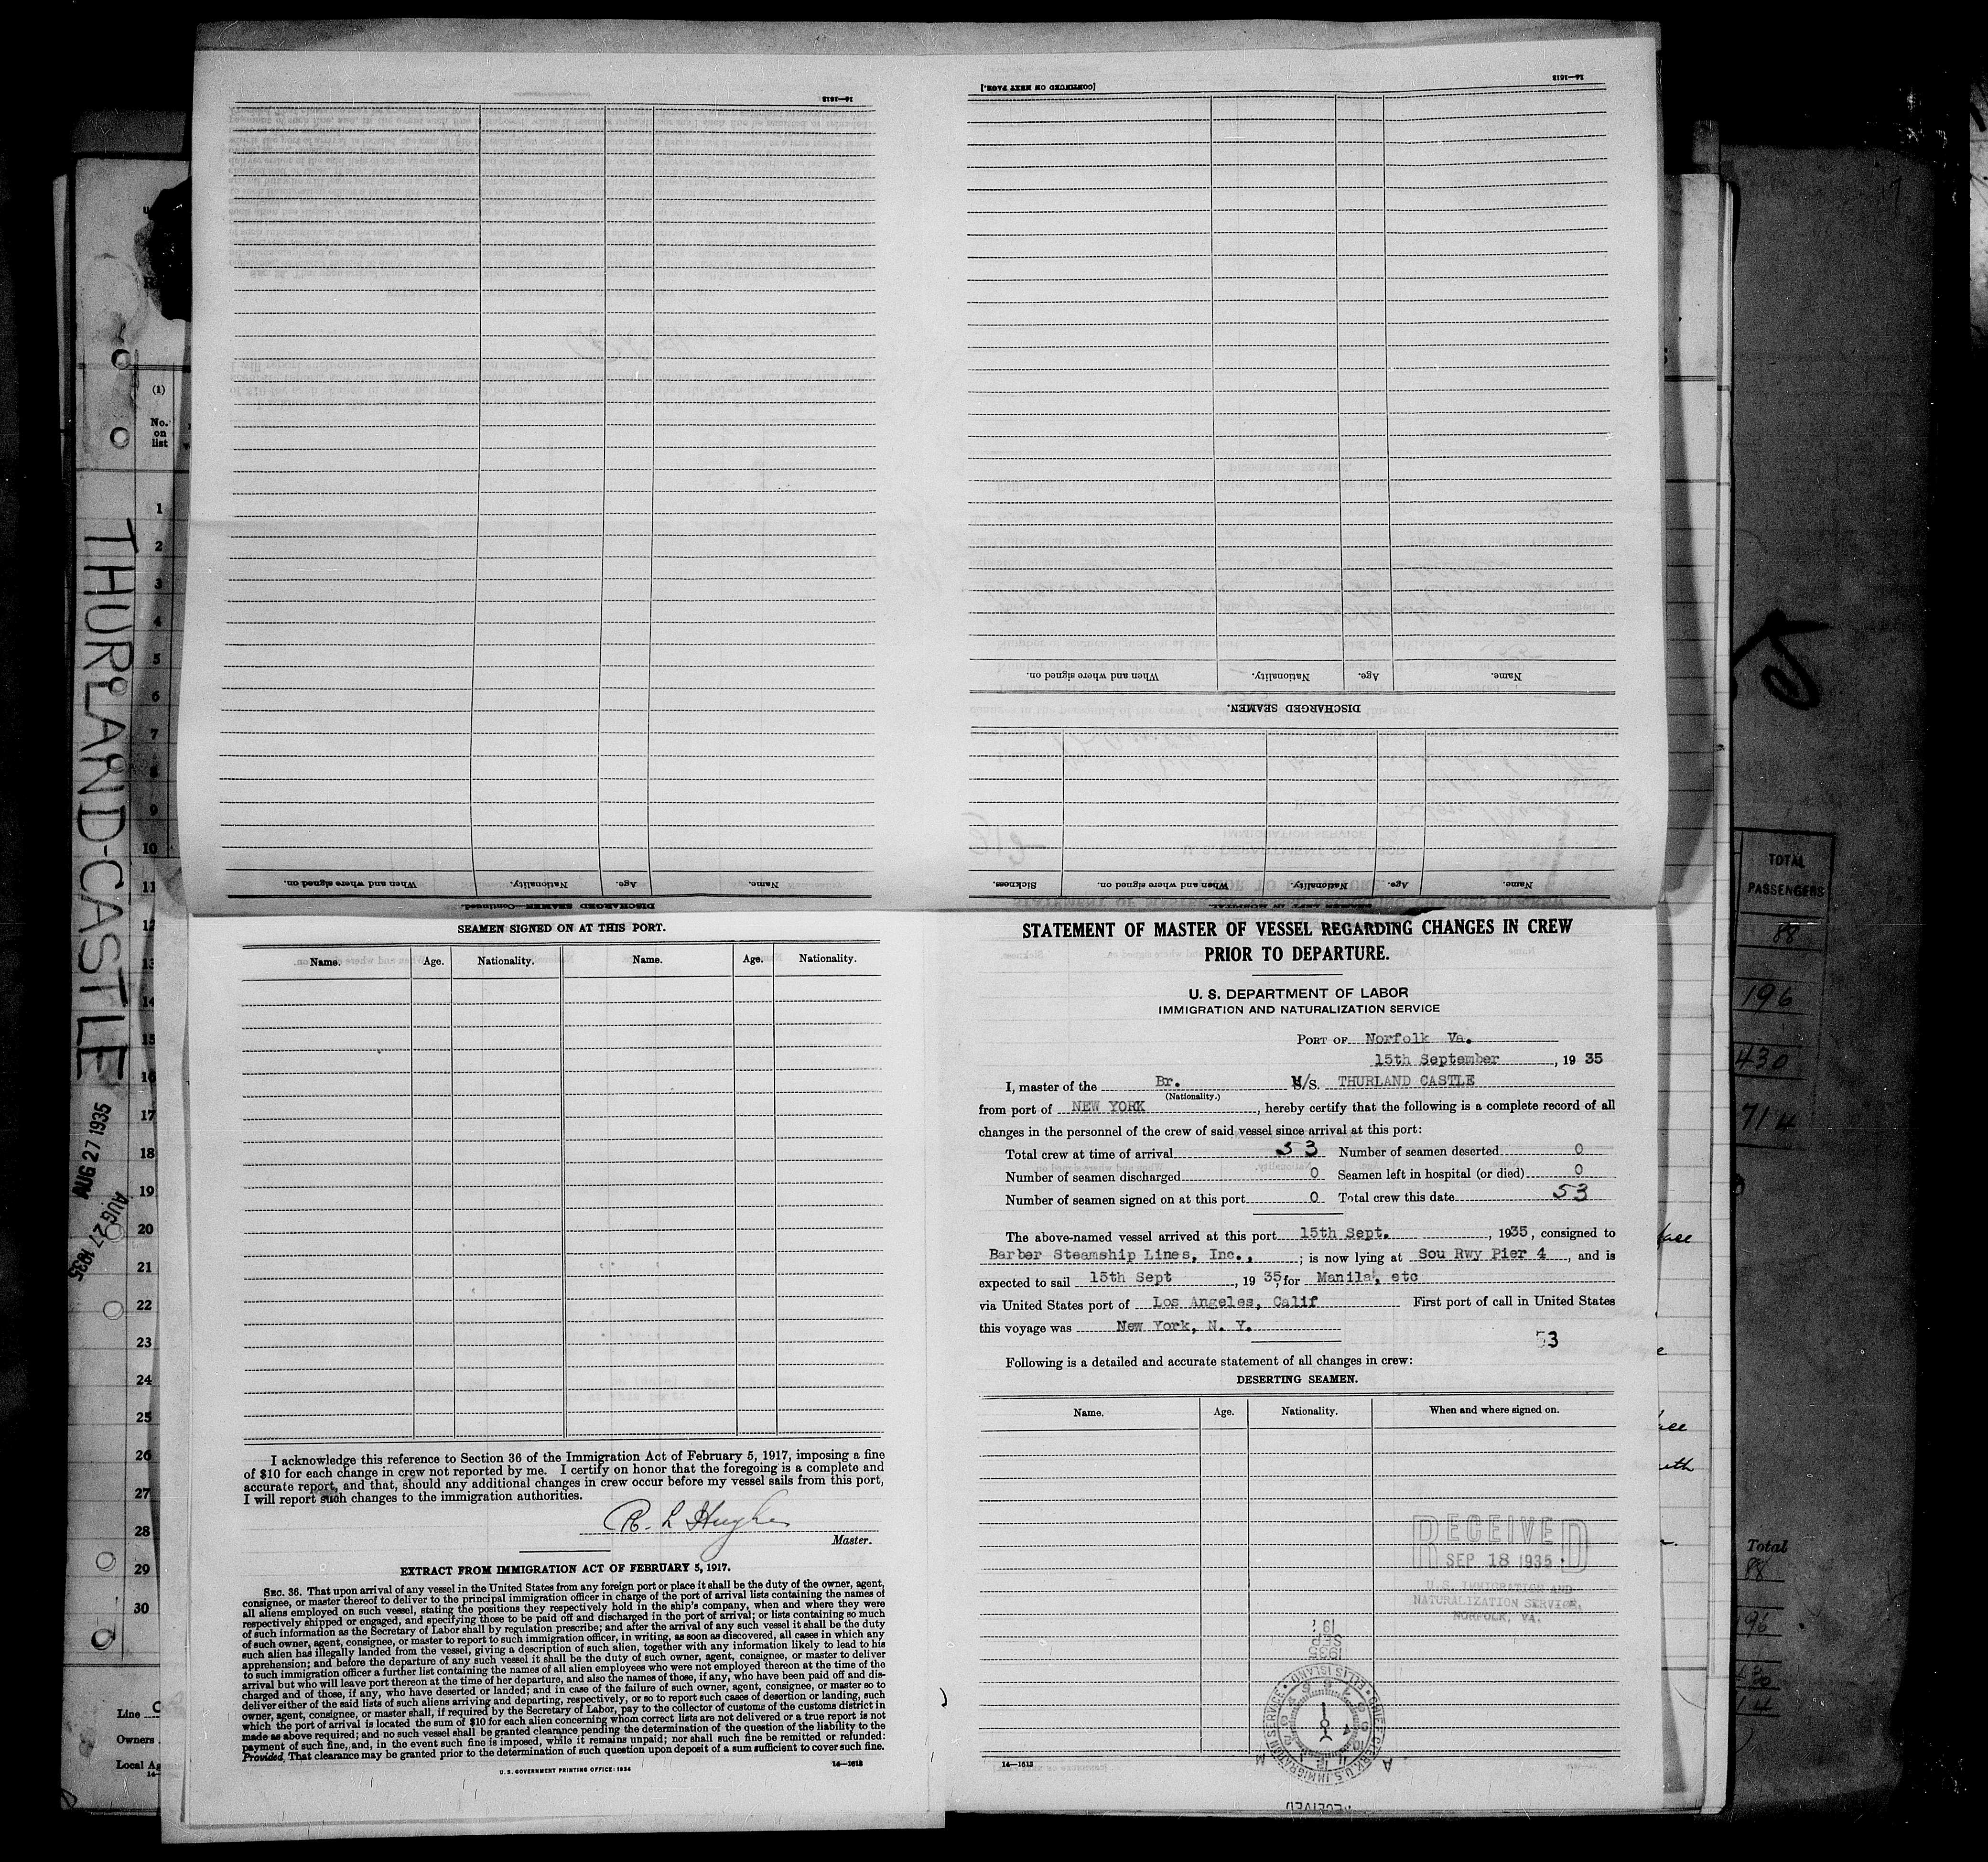 14—1613
[CONTINUED ON NEXT PAGE.]
14—1613
Name.
Age.
Nationality.
When and where signed on.
DISCHARGED SEAMEN.
SEAMEN LEFT IN HOSPITAL.
Name.
Age.
Nationality.
When and where signed on.
Sickness.
DISCHARGED SEAMEN—Continued.
Name.
Age.
Nationality.
When and where signed on.
THURLAND-CASTLE
AUG 27 1935
AUG 27 1935
(1)
No.
on
list
1
2
3
4
5
6
7
8
9
10
11
12
13
14
15
16
17
18
19
20
21
22
23
24
25
26
27
28
29
30
Line
Owners
Local Ag
14—
SEAMEN SIGNED ON AT THIS PORT.
Name. Age. Nationality. Name. Age. Nationality.
I acknowledge this reference to Section 36 of the Immigration Act of February 5, 1917, imposing a fine
of $10 for each change in crew not reported by me. I certify on honor that the foregoing is a complete and
accurate report, and that, should any additional changes in crew occur before my vessel sails from this port,
I will report such changes to the immigration authorities.
R. L Hughes
Master.
EXTRACT FROM IMMIGRATION ACT OF FEBRUARY 5, 1917.
SEC. 36. That upon arrival of any vessel in the United States from any foreign port or place it shall be the duty of the owner, agent,
consignee, or master thereof to deliver to the principal immigration officer in charge of the port of arrival lists containing the names of
all aliens employed on such vessel, stating the positions they respectively hold in the ship's company, when and where they were
respectively shipped or engaged, and specifying those to be paid off and discharged in the port of arrival; or lists containing so much
of such information as the Secretary of Labor shall by regulation prescribe; and after the arrival of any such vessel it shall be the duty
of such owner, agent, consignee, or master to report to such immigration officer, in writing, as soon as discovered, all cases in which any
such alien has illegally landed from the vessel, giving a description of such alien, together with any information likely to lead to his
apprehension; and before the departure of any such vessel it shall be the duty of such owner, agent, consignee, or master to deliver
to such immigration officer a further list containing the names of all alien employees who were not employed thereon at the time of the
arrival but who will leave port thereon at the time of her departure, and also the names of those, if any, who have been paid off and dis-
charged and of those, if any, who have deserted or landed; and in case of the failure of such owner, agent, consignee, or master so to
deliver either of the said lists of such aliens arriving and departing, respectively, or so to report such cases of desertion or landing, such
owner, agent, consignee, or master shall, if required by the Secretary of Labor, pay to the collector of customs of the customs district in
which the port of arrival is located the sum of $10 for each alien concerning whom correct lists are not delivered or a true report is not
made as above required; and no such vessel shall be granted clearance pending the determination of the question of the liability to the
payment of such fine, and, in the event such fine is imposed, while it remains unpaid; nor shall such fine be remitted or refunded:
Provided, That clearance may be granted prior to the determination of such question upon deposit of a sum sufficient to cover such fine.
U. S. GOVERNMENT PRINTING OFFICE: 1934
14—1613
STATEMENT OF MASTER OF VESSEL REGARDING CHANGES IN CREW
PRIOR TO DEPARTURE.
U. S. DEPARTMENT OF LABOR
IMMIGRATION AND NATURALIZATION SERVICE
PORT OF Norfolk Va.
15th September, 19 35
I, master of the Br. M/S. THURLAND CASTLE
(Nationality.)
from port of NEW YORK, hereby certify that the following is a complete record of all
changes in the personnel of the crew of said vessel since arrival at this port:
Total crew at time of arrival 53 Number of seamen deserted 0
Number of seamen discharged 0 Seamen left in hospital (or died) 0
Number of seamen signed on at this port 0 Total crew this date 53
The above-named vessel arrived at this port 15th Sept., 1935, consigned to
Barber Steamship Lines, Inc.,; is now lying at Sou Rwy Pier 4, and is
expected to sail 15th Sept, 19 35, for Manila, etc
via United States port of Los Angeles, Calif First port of call in United States
this voyage was New York, N. Y.
53
Following is a detailed and accurate statement of all changes in crew:
DESERTING SEAMEN.
Name. Age. Nationality. When and where signed on.
RECEIVED
SEP 18 1935
U. S. IMMIGRATION AND
NATURALIZATION SERVICE,
NORFOLK, VA.
1935
SEP
19
CHIEF CLERK, U.S. IMMIGRATION SERVICE • ELLIS ISLAND •
A M
RECEIVED
14—1613
TOTAL
PASSENGERS
88
196
430
714
Total
88
196
430
14